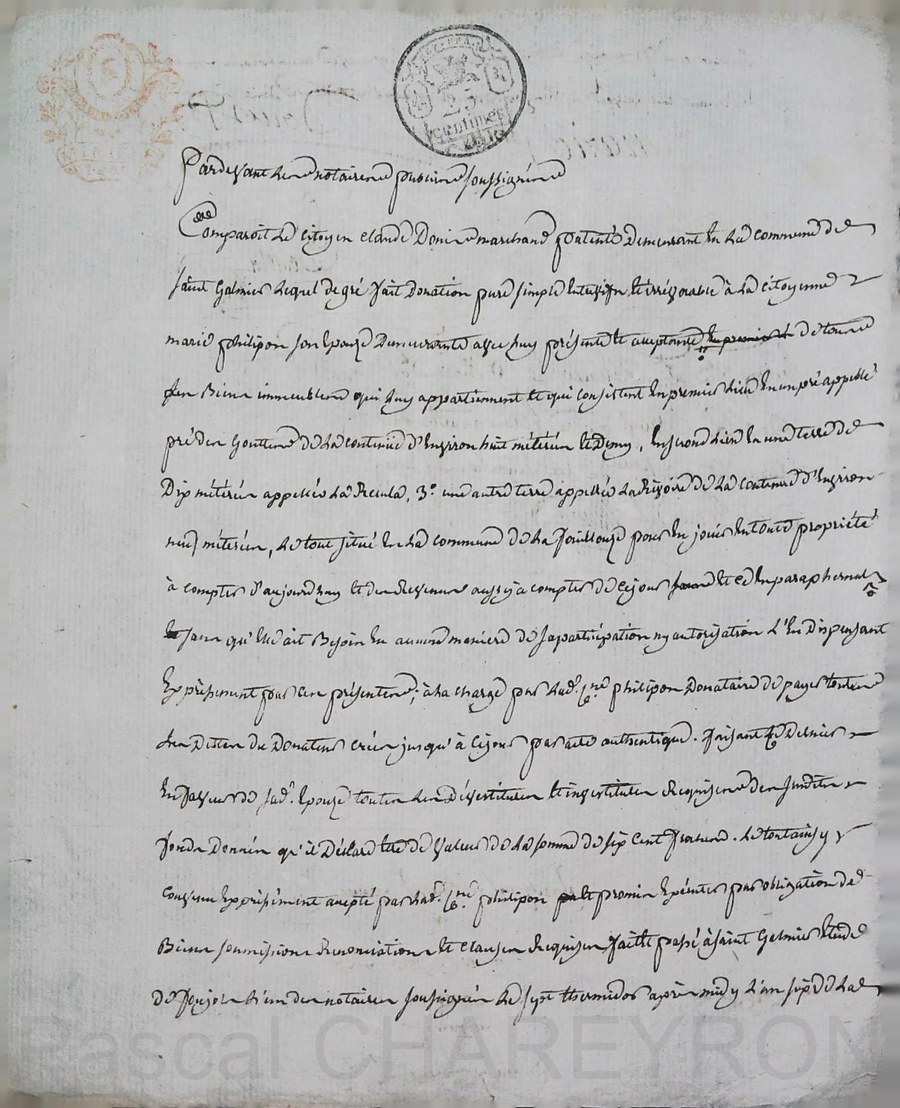 25
centimes
Pardevant Les notaires publics soussignés
Comparoit Le Citoyen Claude marchand patenté Demeurant En La commune de
saint Galmier Lequel de gré fait Donation pure simple Entrevifs Et irrévocable à La Citoyenne
marie philipon son Epouze Demeurante avec Luy présente Et acceptante de tous
Les Biens immeubles qui Luy appartiennent Et qui consistent En premier Lieu En un pré appellé
pré des Gouttes de La contenue d'Environ huit métérées Et Demy, En second Lieu En une terre de
Dix métérées appellée La 3.º une autre terre appellée La Rivoire de La contenue d'Environ
neuf métérées, Le tout situé En La commune de La fouillouze pour En jouir En toute propriété
à compter d'aujourd'huy Et des Revenus aussy à compter de Ce jour Et Ce En paraphernal
sans qu'Elle ait Besoin En aucune maniere de sa participation ny autorisation L'En Dispensant
Expressement par Ces présentes, à La charge par Lad. C.ne philipon Donataire de payer toutes
Les Dettes du Donateur créées jusqu'à Ce jour par acte authentique. faisant Ce Dernier
En faveur de sad. Epouze toutes Les Dévestitures Et investitures Requises Desdits
fonds Donnés qu'il Déclare Etre de valeur de La somme de six Cent francs. Le tout ainsy
Convenu Expressément accepté par Lad. C.ne philipon Et promis Exécuter par obligation de
Biens soumissions Renonciations Et Clauses Requises fait Et passé à saint Galmier Etude
de L'un des notaires soussignés Le sept thermidor après midy L'an sept de La
Pascal CHAREYRON